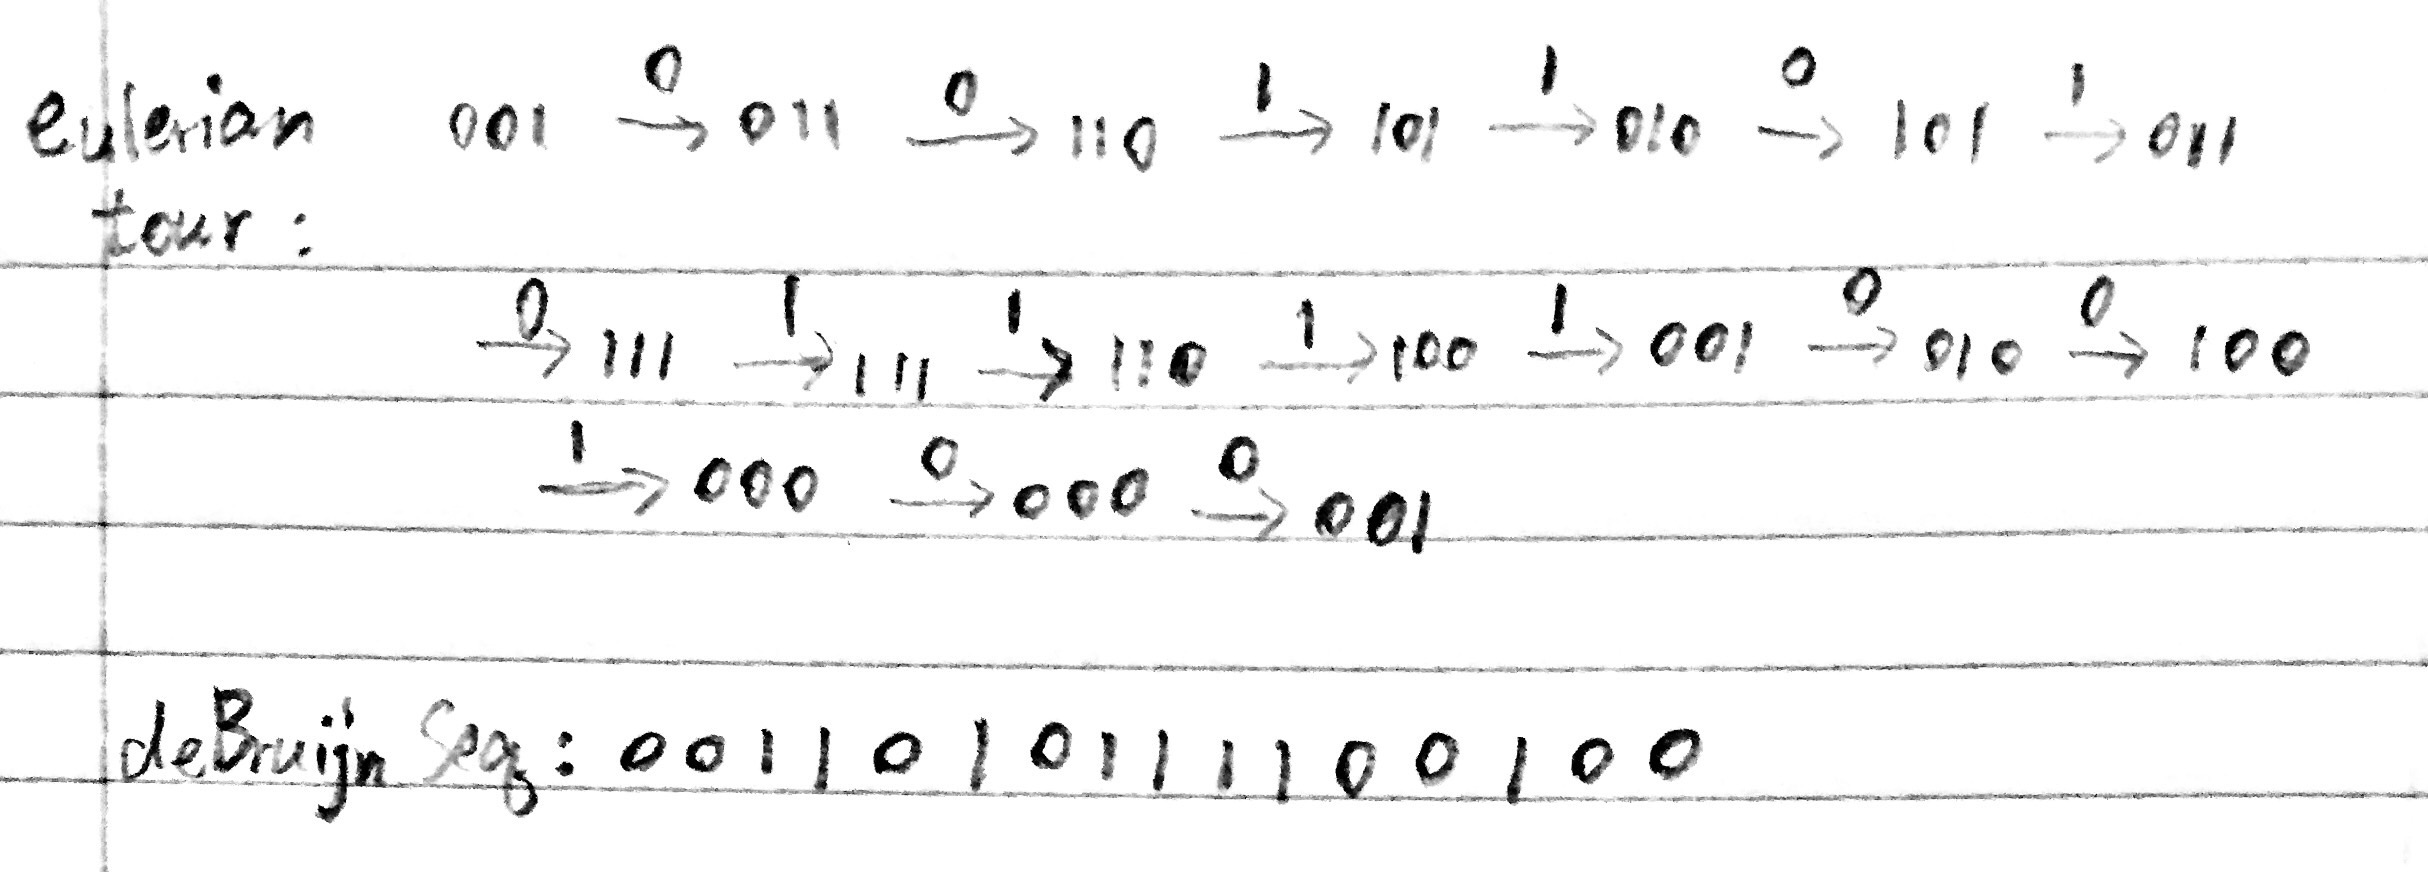 eulerian 001 0→ 011 0→ 110 1→ 101 1→ 010 0→ 101 1→ 011
tour:
0→ 111 1→ 111 1→ 110 1→ 100 1→ 001 0→ 010 0→ 100
1→ 000 0→ 000 0→ 001
deBruijn Seq: 0011010111100100